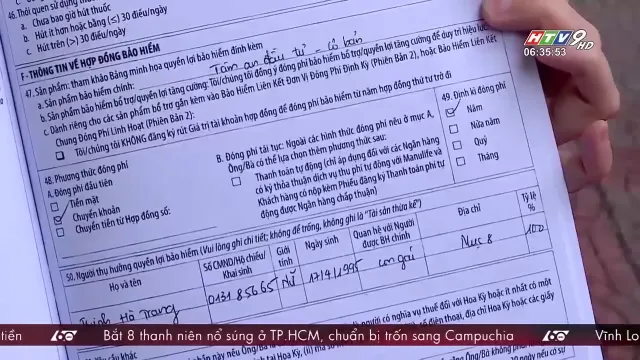 HTV9 HD
06:35:53
46. Thói quen sử dụng thuốc
a. Chưa bao giờ hút thuốc
b. Hút ít hơn hoặc bằng (≤) 30 điếu/ngày
c. Hút trên (>) 30 điếu/ngày
F-THÔNG TIN VỀ HỢP ĐỒNG BẢO HIỂM
47. Sản phẩm: tham khảo Bảng minh họa quyền lợi bảo hiểm đính kèm
a. Sản phẩm bảo hiểm chính: Tâm an đầu tư - Cơ bản
b. Sản phẩm bảo hiểm bổ trợ/quyền lợi tăng cường: Tôi/chúng tôi đồng ý đóng phí bảo hiểm bổ trợ/quyền lợi tăng cường để duy trì hiệu lực
c. Dành riêng cho các sản phẩm bổ trợ gắn kèm vào Bảo Hiểm Liên Kết Đơn Vị Đóng Phí Định Kỳ (Phiên Bản 2), hoặc Bảo Hiểm Liên Kết
Chung Đóng Phí Linh Hoạt (Phiên Bản 2):
Tôi/chúng tôi KHÔNG đăng ký rút Giá trị tài khoản hợp đồng để đóng phí bảo hiểm từ năm hợp đồng thứ tư trở đi
48. Phương thức đóng phí
A. Đóng phí đầu tiên
Tiền mặt
Chuyển khoản
Chuyển tiền từ Hợp đồng số:
B. Đóng phí tái tục: Ngoài các hình thức đóng phí nêu ở mục A,
Ông/Bà có thể lựa chọn thêm phương thức sau:
Thanh toán tự động (chỉ áp dụng đối với các Ngân hàng
có ký thỏa thuận dịch vụ thu phí tự động với Manulife và
Khách hàng có nộp kèm Phiếu đăng ký Thanh toán phí tự
động được Ngân hàng chấp thuận)
49. Định kì đóng phí
Năm
Nửa năm
Quý
Tháng
50. Người thụ hưởng quyền lợi bảo hiểm (Vui lòng ghi chi tiết; không để trống, không ghi là "Tài sản thừa kế")
Họ và tên
Số CMND/Hộ chiếu/
Khai sinh
Giới
tính
Ngày sinh
Quan hệ với Người
được BH chính
Địa chỉ
Tỷ lệ
%
Trịnh Hà Trang
013185665
Nữ
17/4/1995
con gái
Mục 8
100
tiền
60
Bắt 8 thanh niên nổ súng ở TP.HCM, chuẩn bị trốn sang Campuchia
60
Vĩnh Lo